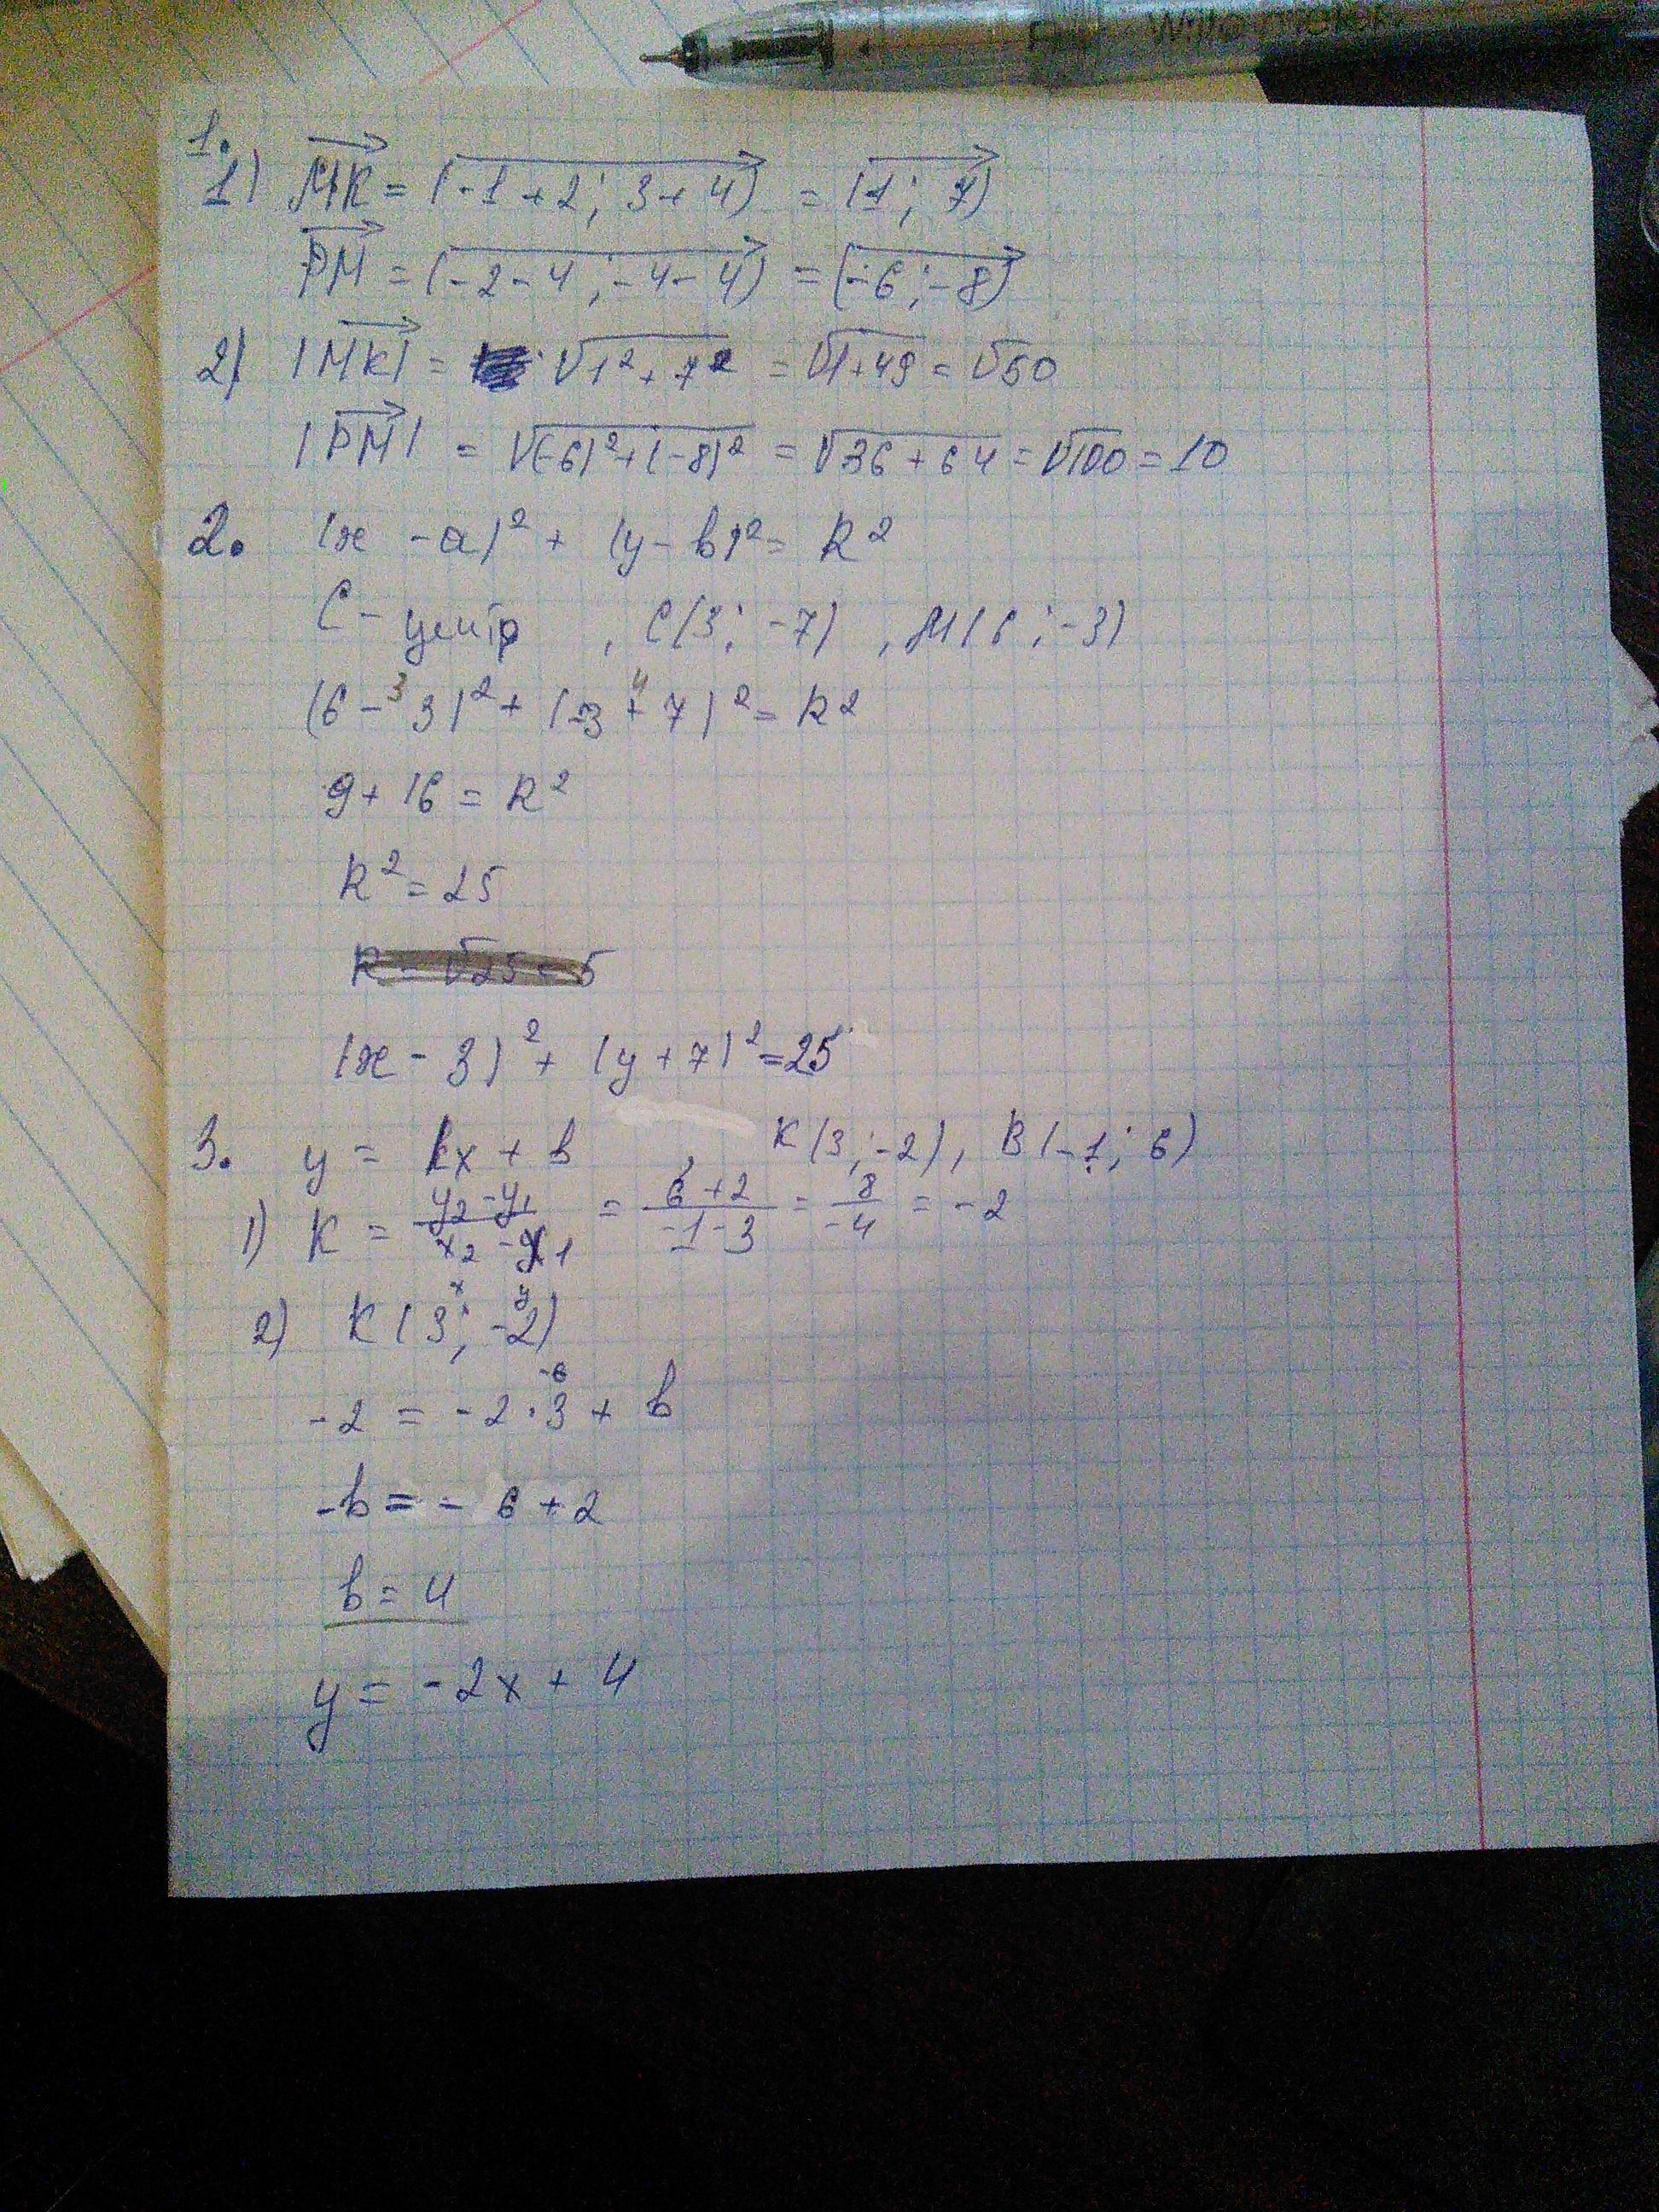 1.
1) MK = (-1+2; 3+4) = (1; 7)
PM = (-2-4; -4-4) = (-6; -8)
2) |MK| = √1²+7² = √1+49 = √50
|PM| = √(-6)²+(-8)² = √36+64 = √100 = 10
2. (x - a)² + (y - b)² = R²
C - центр, C(3; -7), M(6; -3)
(6 - 3)² + (-3 + 7)² = R²
3 4
9 + 16 = R²
R² = 25
R = √25 = 5
(x - 3)² + (y + 7)² = 25
3. y = kx + b, K(3; -2), B(-1; 6)
1) K = y₂-y₁/x₂-x₁ = 6+2/-1-3 = 8/-4 = -2
x y
2) K(3; -2)
-6
-2 = -2·3 + b
-b = - 6 + 2
b = 4
y = -2x + 4